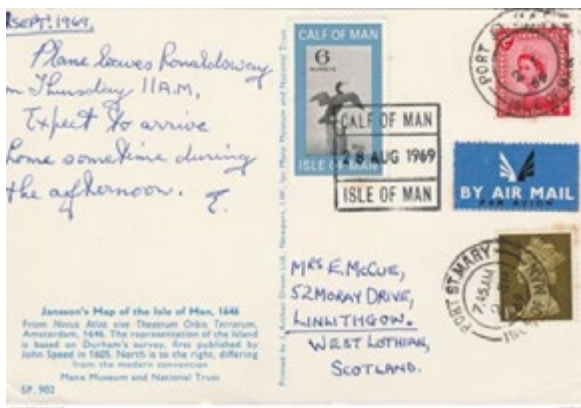 SEPT. 1969.
Plane leaves Ronaldsway
on Thursday 11 A.M.
Expect to arrive
home sometime during
the afternoon. E.
Jansson's Map of the Isle of Man, 1646
From Novus Atlas sive Theatrum Orbis Terrarum,
Amsterdam, 1646. The representation of the Island
is based on Durham's survey, first published by
John Speed in 1605. North is to the right, differing
from the modern convention
Manx Museum and National Trust
SP. 902
CALF OF MAN
6
MURRELS
ISLE OF MAN
CALF OF MAN
28 AUG 1969
ISLE OF MAN
PORT ST. MARY
ISLE OF MAN
BY AIR MAIL
PAR AVION
PORT ST. MARY
7.45 AM
ISLE OF MAN
MRS E. McCUE,
52 MORAY DRIVE,
LINLITHGOW.
WEST LOTHIAN,
SCOTLAND.